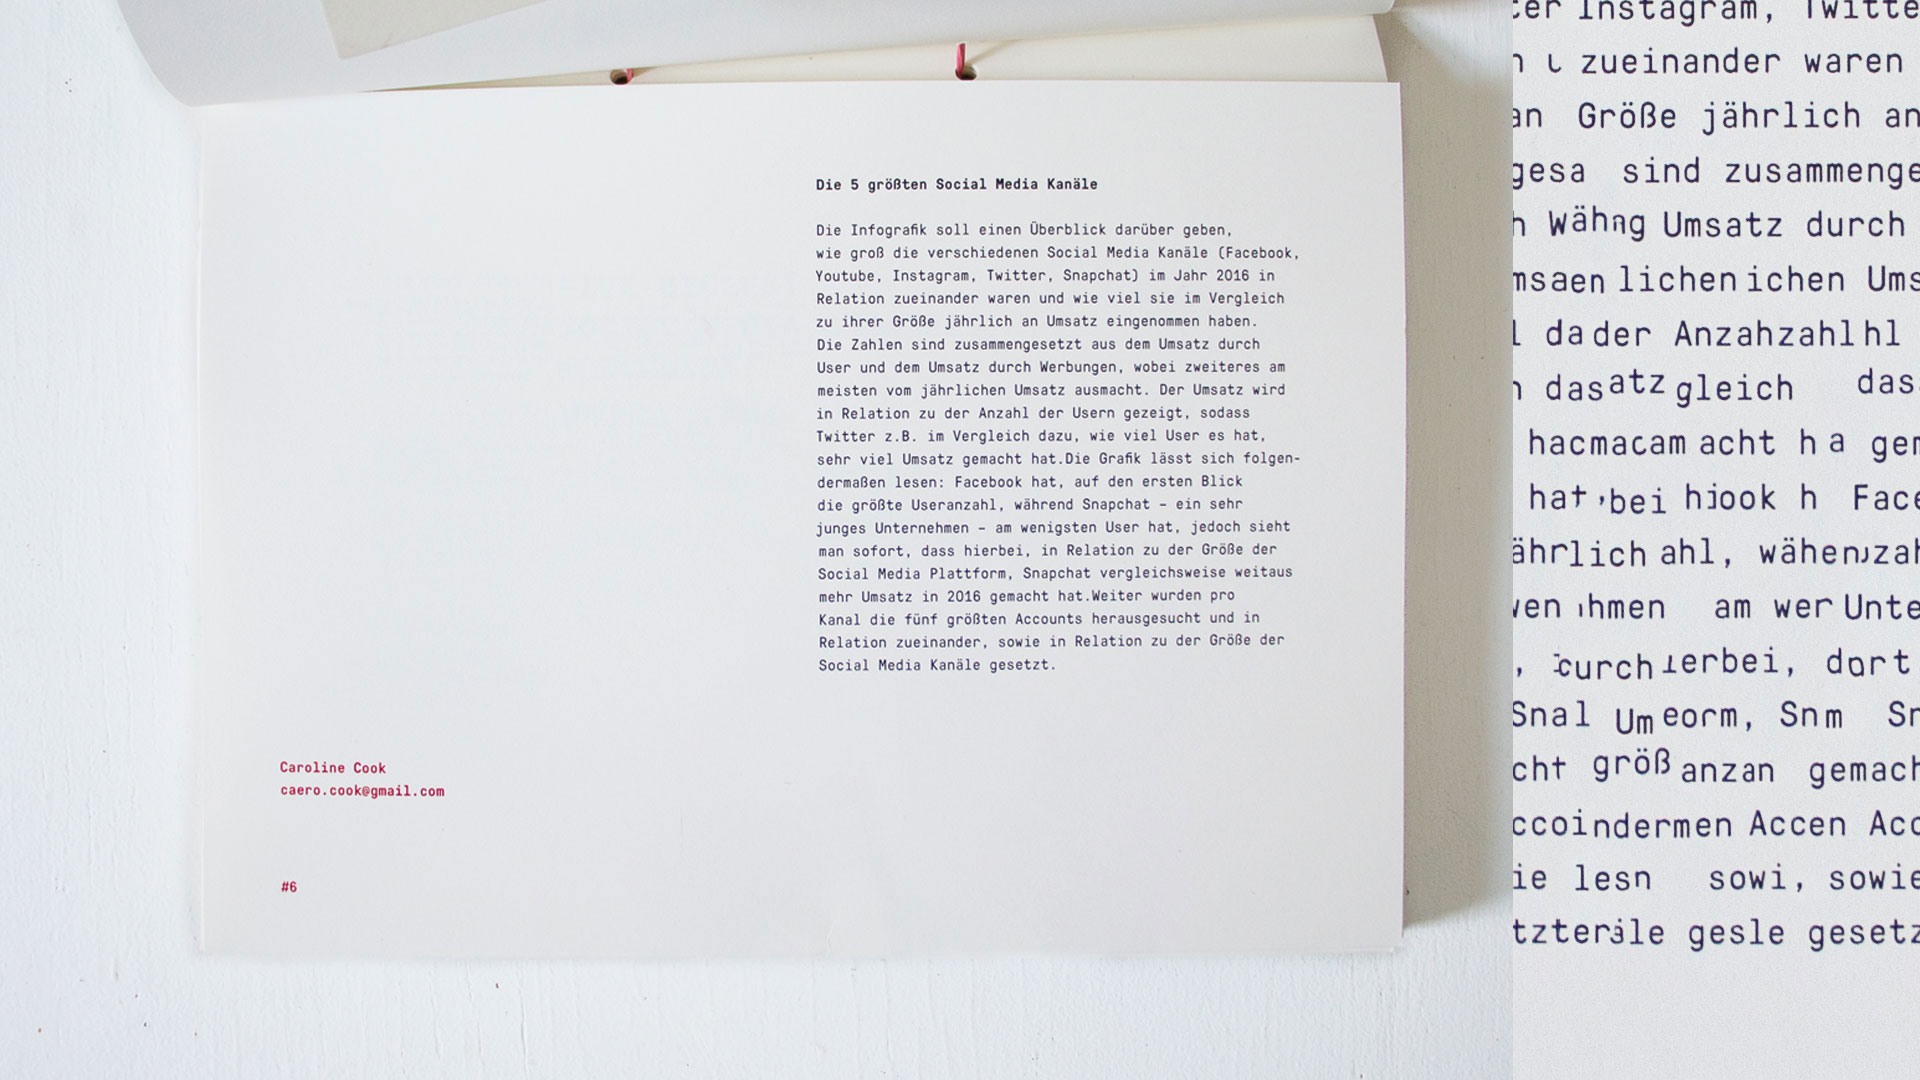 Die 5 größten Social Media Kanäle
Die Infografik soll einen Überblick darüber geben,
wie groß die verschiedenen Social Media Kanäle (Facebook,
Youtube, Instagram, Twitter, Snapchat) im Jahr 2016 in
Relation zueinander waren und wie viel sie im Vergleich
zu ihrer Größe jährlich an Umsatz eingenommen haben.
Die Zahlen sind zusammengesetzt aus dem Umsatz durch
User und dem Umsatz durch Werbungen, wobei zweiteres am
meisten vom jährlichen Umsatz ausmacht. Der Umsatz wird
in Relation zu der Anzahl der Usern gezeigt, sodass
Twitter z.B. im Vergleich dazu, wie viel User es hat,
sehr viel Umsatz gemacht hat.Die Grafik lässt sich folgen-
dermaßen lesen: Facebook hat, auf den ersten Blick
die größte Useranzahl, während Snapchat – ein sehr
junges Unternehmen – am wenigsten User hat, jedoch sieht
man sofort, dass hierbei, in Relation zu der Größe der
Social Media Plattform, Snapchat vergleichsweise weitaus
mehr Umsatz in 2016 gemacht hat.Weiter wurden pro
Kanal die fünf größten Accounts herausgesucht und in
Relation zueinander, sowie in Relation zu der Größe der
Social Media Kanäle gesetzt.
Caroline Cook
caero.cook@gmail.com
#6
Instagram,
zueinander waren
Größe jährlich
sind
Umsatz durch
lichen ichen
der
gleich das
acht
hat bei
ahl,
am
erbei,
gemach
Accen
sowi, sowie
gesle